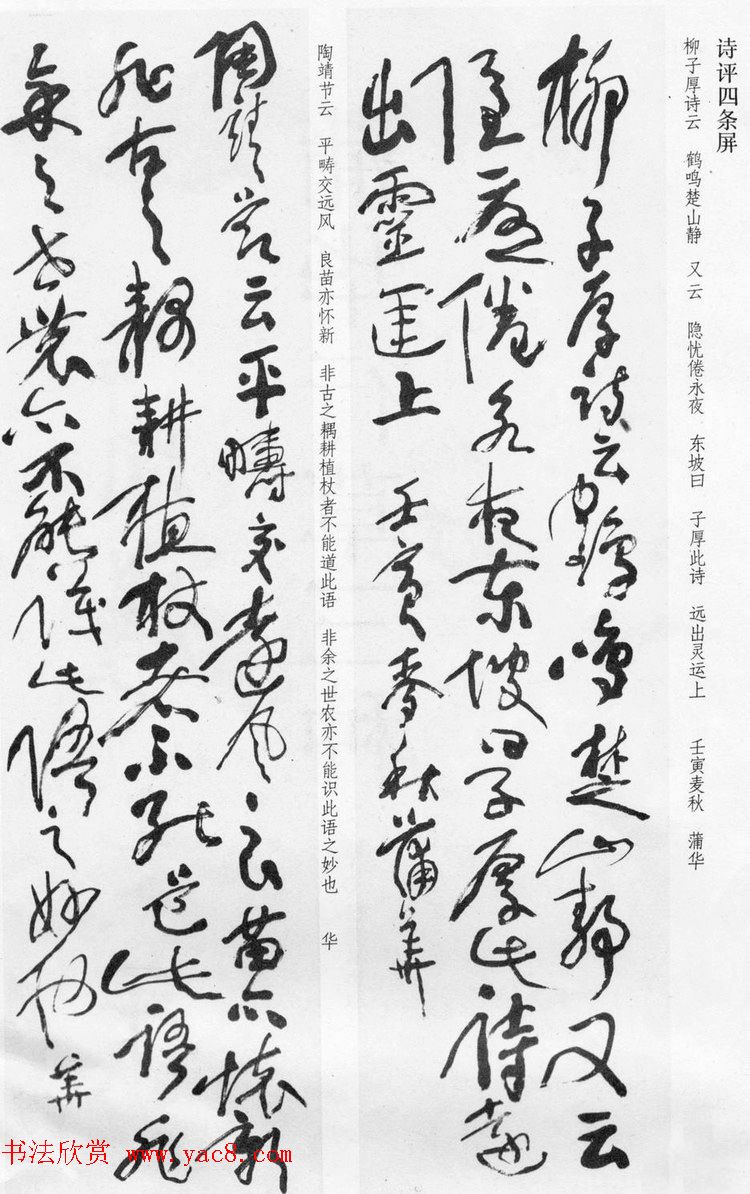 诗评四条屏
柳子厚诗云 鹤鸣楚山静 又云 隐忧倦永夜 东坡曰 子厚此诗 远出灵运上 壬寅麦秋 蒲华
柳子厚詩云鶴鳴楚山靜又云
隱憂倦永夜東坡曰子厚此詩遠
出靈運上 壬寅麥秋蒲華
陶靖节云 平畴交远风 良苗亦怀新 非古之耦耕植杖者不能道此语 非余之世农亦不能识此语之妙也 华
陶靖節云平疇交遠風良苗亦懷新
非古之耦耕植杖者不能道此語非
余之世農亦不能識此語之妙也 華
书法欣赏 www.yac8.com